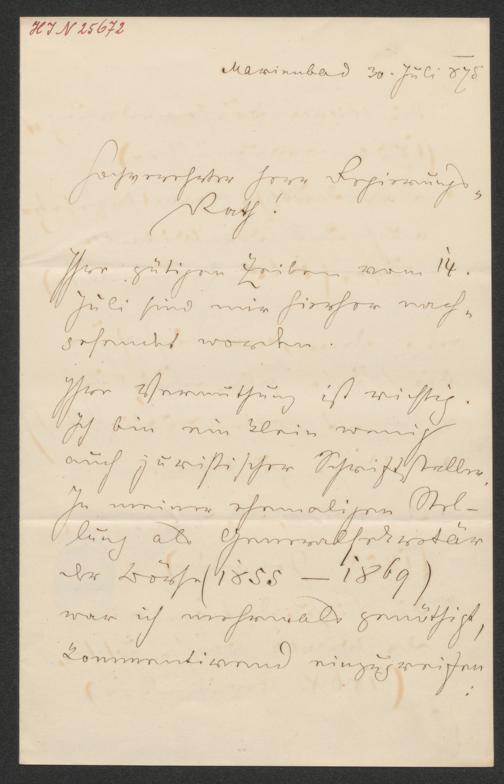 HIN 25672
Marienbad 30. Juli 875
Hochverehrter Herr Regierungs-
Rath!
Ihre gütigen Zeilen vom 14.
Juli sind mir hierher nach-
gesendet worden.
Ihre Vermuthung ist richtig.
Ich bin ein klein wenig
auch juristischer Schriftsteller.
In meiner ehemaligen Stel-
lung als Generalsekretär
der Börse (1855 – 1869)
war ich mehrmals genöthigt,
kommentirend einzugreifen